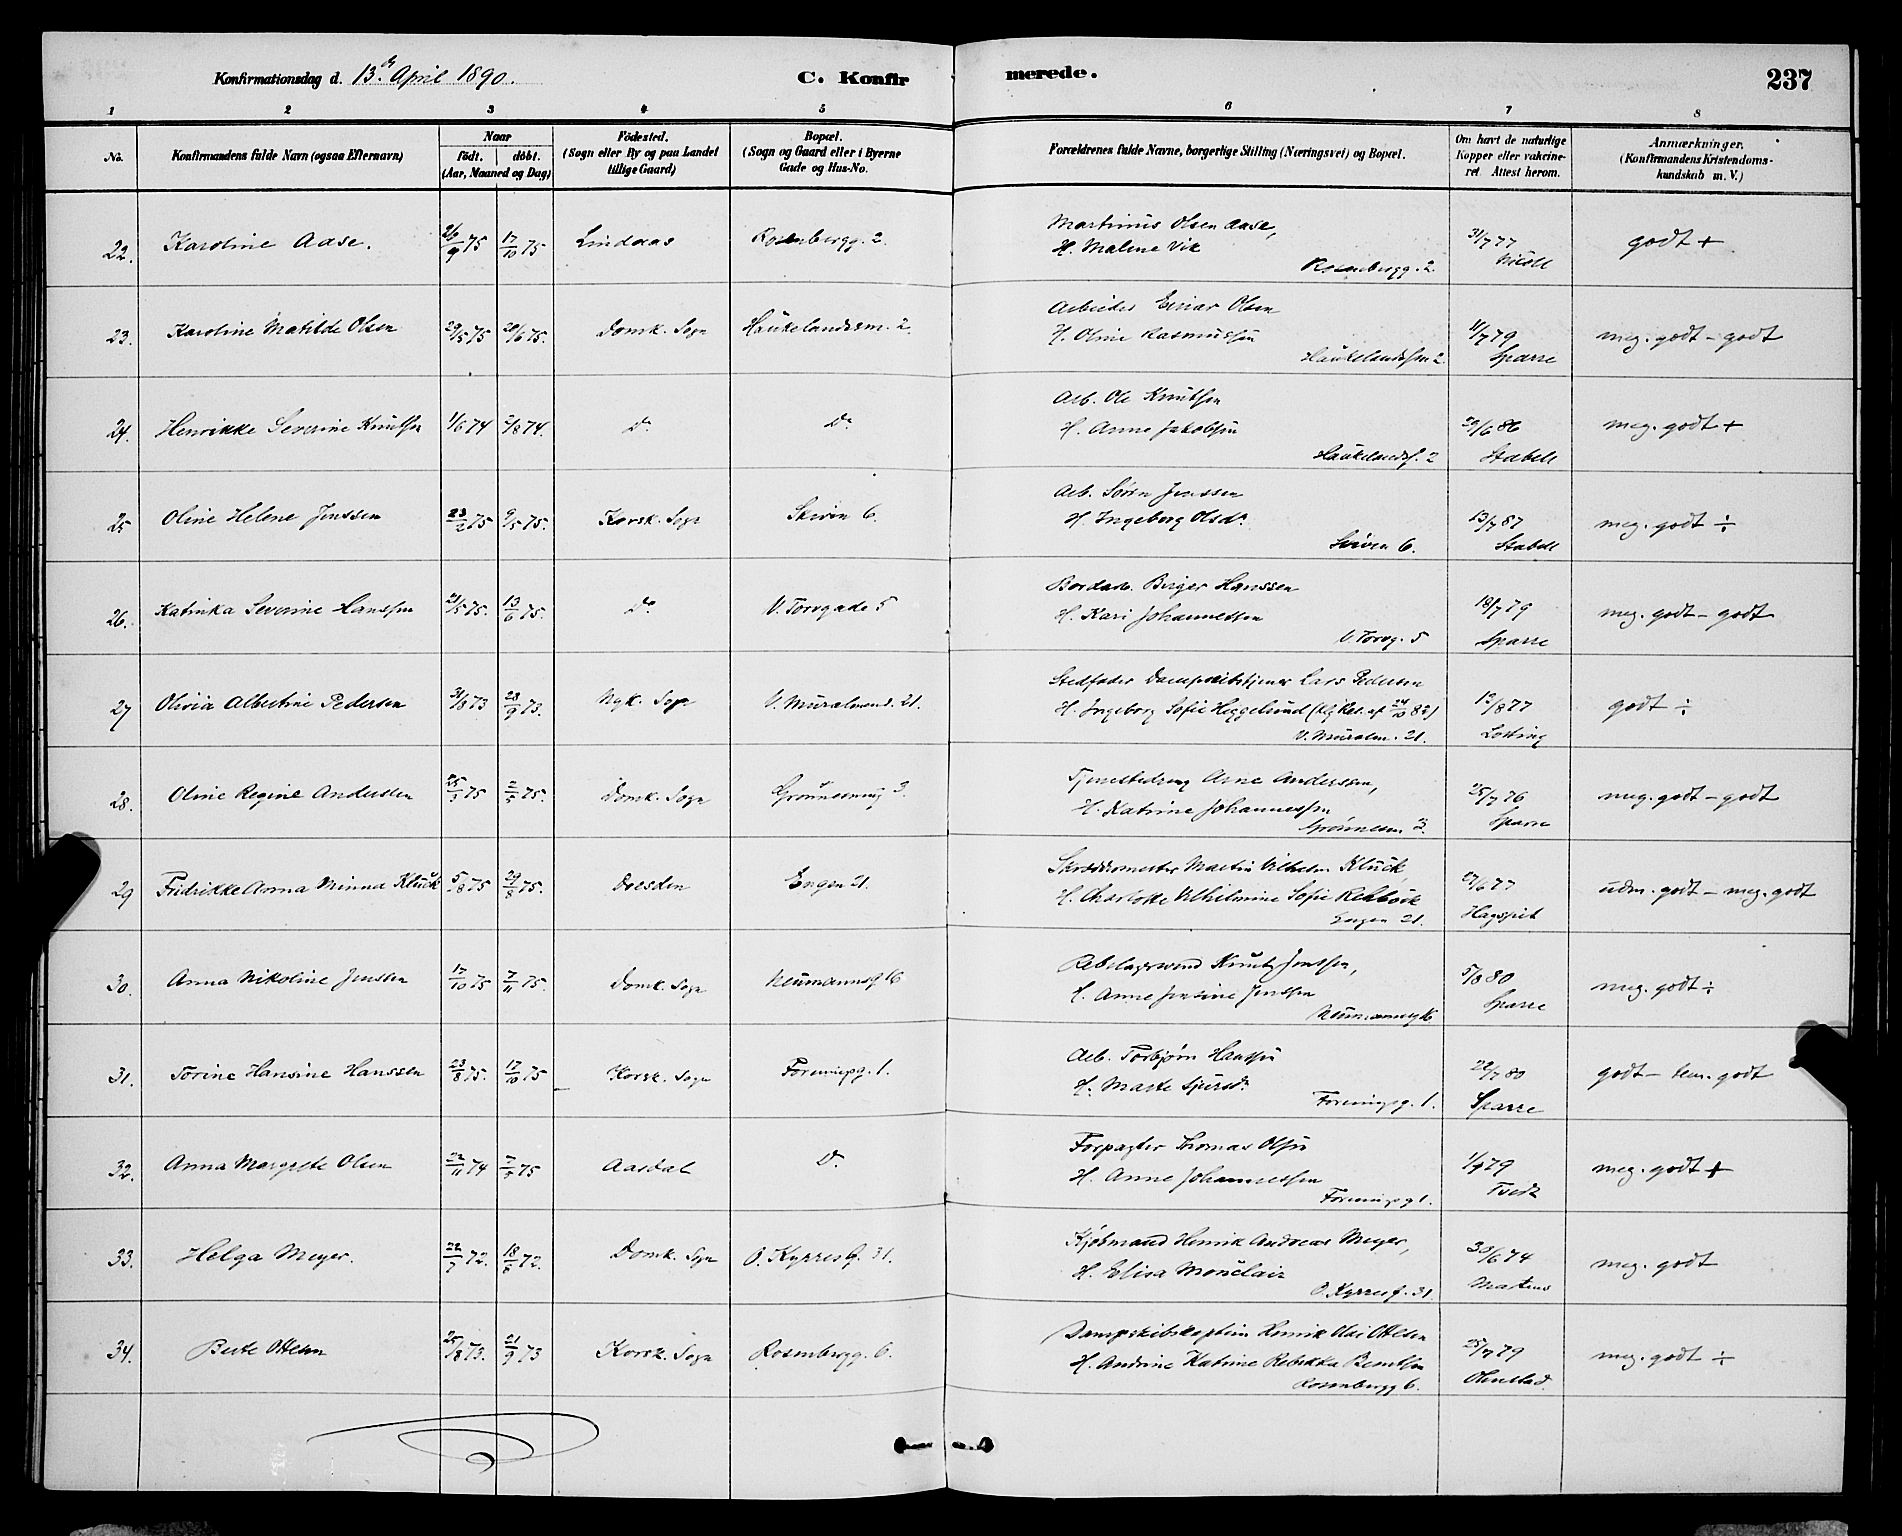 Konfirmationsdag d. 13de April 1890.
C. Konfirmerede.
237
1 2 3 4 5 6 7 8
No. Konfirmandens fulde Navn (ogsaa Efternavn) Naar födt. döbt. (Aar, Maaned og Dag) Födested. (Sogn eller By og paa Landet tillige Gaard) Bopæl. (Sogn og Gaard eller i Byerne Gade og Hus-No. Forældrenes fulde Navne, borgerlige Stilling (Næringsvei) og Bopæl. Om havt de naturlige Kopper eller vakcineret. Attest herom. Anmærkninger. (Konfirmandens Kristendomskundskab m. V.)
22. Karoline Aase. 26/9 75 17/10 75 Lindaas Rosenbergg. 2. Martinus Olsen Aase, 31/7 77 godt +
H. Malene Vik
Rosenbergg. 2
23. Karoline Matilde Olsen 29/5 75 20/6 75. Domk. Sogn Haukelandssm. 2. Arbeider Einar Olsen 11/7 79 meg. godt - godt
H. Oline Rasmussen Sparre
Haukelandssm 2
24. Henrikke Severine Knutsen 1/6 74 2/8 74. Do Do Arb. Ole Knutsen 29/6 86 meg. godt +
H. Anne Jakobsen Stabell
Haukelands. 2
25 Oline Helene Jenssen 23/2 75 9/5 75. Korsk. Sogn Skiven 6. Arb. Sören Jenssen 13/7 87 meg. godt ÷
H. Ingeborg Olsdr. Stabell
Skiven 6.
26. Katinka Severine Hanssen 21/5 75. 13/6 75. Do V. Torvgade 5 Birger Hanssen 18/7 79 meg. godt - godt
H. Kari Johannessen Sparre
V. Torvg. 5
27 Olivia Albertine Pedersen 31/8 73 28/9 73. Nyk. Sogn V. Muralmend. 21. Stedfader Lars Pedersen 12/8 77 godt ÷
H. Ingeborg Sofie Heggelund
V. Muralm. 21.
28. Oline Regine Anderssen 25/3 75 2/5 75. Domk. Sogn Grönnesmug 3. Tjenestedreng Arne Anderssen, 25/7 76 meg. godt - godt
H. Katrine Johannessen Sparre
Grönnesm. 3.
29 Fredrikke Anna Minna Klück 5/8 75 29/8 75. Dresden Engen 21. Martin Vilhelm Klück, 27/6 77 udm. godt - meg. godt
H. Charlotte Vilhelmine Sofie Rehbock
Engen 21.
30. Anna Nikoline Jenssen 17/10 75 7/11 75. Domk. Sogn Neumannsg 16 Knut Jenssen, 5/8 80 meg. godt ÷
H. Anne Jensine Jenssen Sparre
Neumannsg 16
31. Torine Hansine Hanssen 23/8 75. 17/10 75 Korsk. Sogn Foreningsg. 1. Arb. Torbjørn Hanssen 22/7 80 godt - tem. godt
H. Marte Sjursdr. Sparre
Foreningsg. 1.
32. Anna Margrete Olsen 22/11 74 7/5 75 Aardal Do Forpagter Thomas Olsen 1/7 79 meg. godt +
H. Anne Johannessen
Foreningsg 1.
33. Helga Meyer. 22/7 72. 18/8 72. Domk. Sogn O. Kyrres G. 31. Kjöbmand Henrik Andreas Meyer, 30/6 74 meg. godt
H. Elisa Monclair Martens
O. Kyrresg. 31.
34. Berte Ottesen 25/8 73. 21/9 73 Korsk. Sogn Rosenbergg. 6. Dampskibskaptein Henrik Ottesen 25/7 79 meg. godt ÷
H. Andrine Katrine Rebekka Berntsen
Rosenbergg 6.